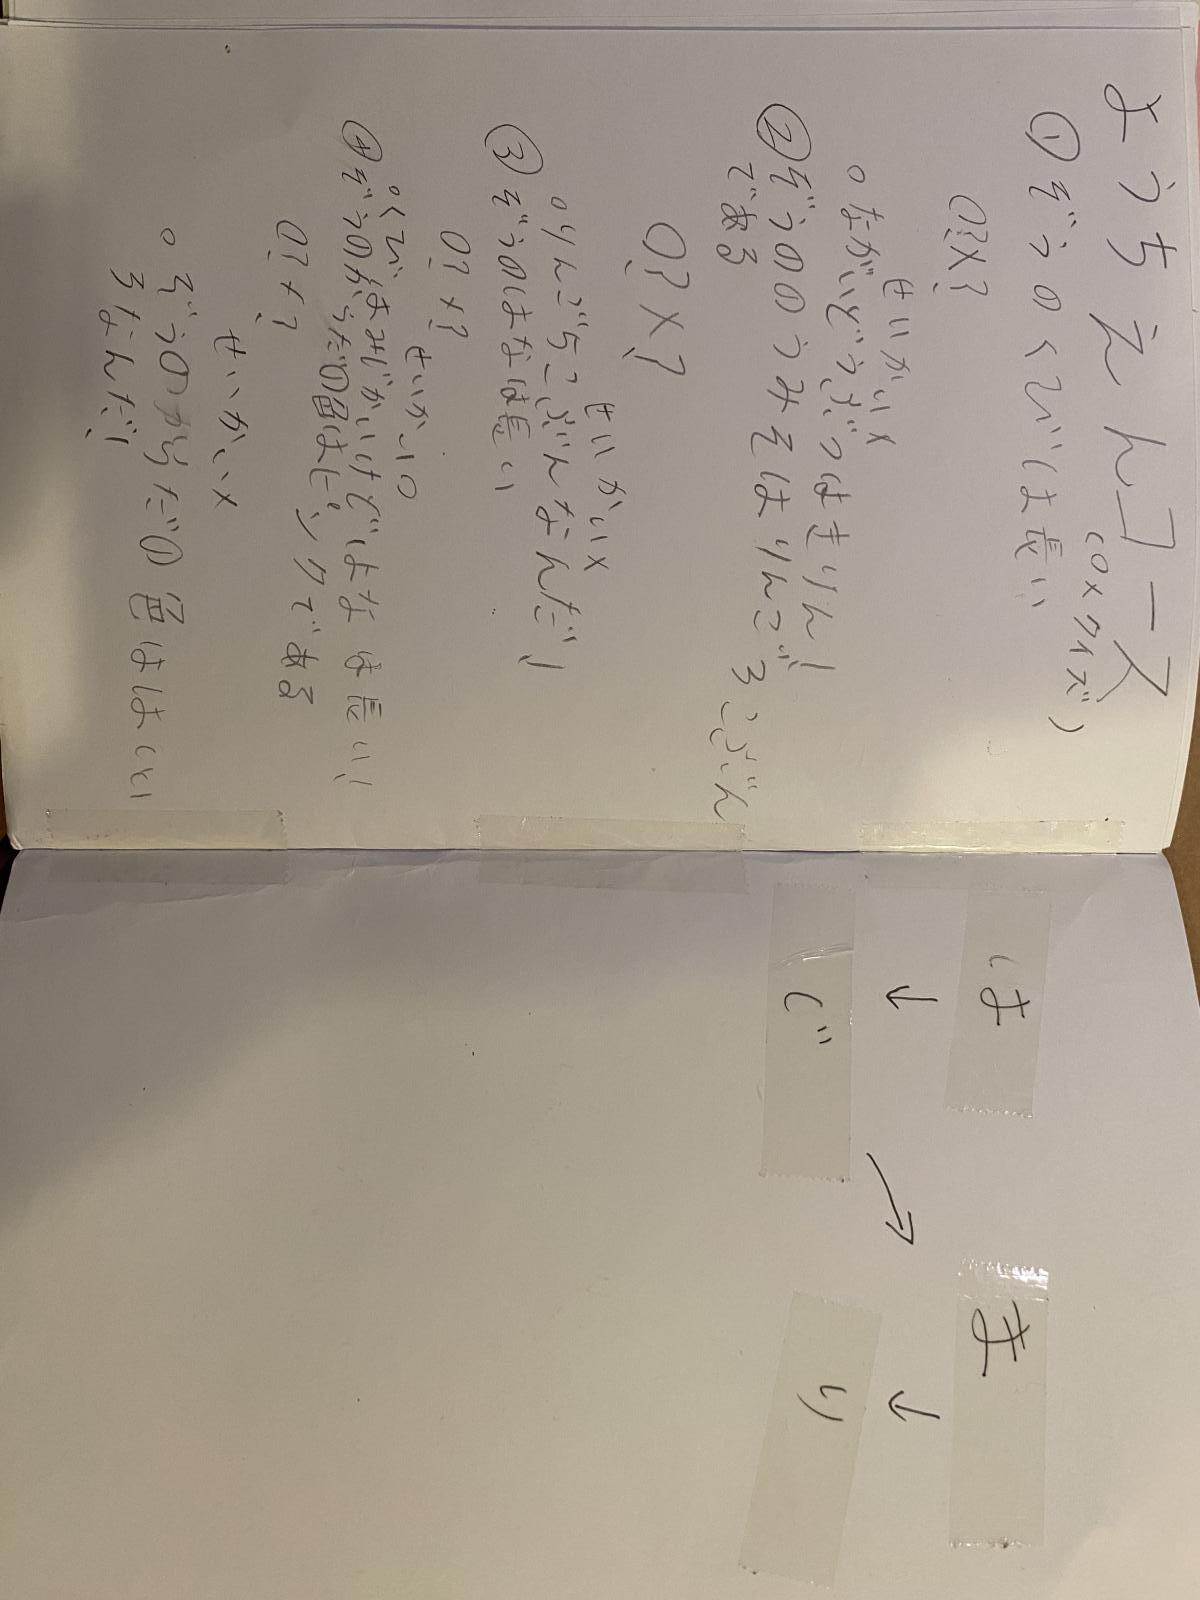 ようちえんコース
(○×クイズ)
①ぞうのくびは長い
○?×?
せいかい×
○ながいどうぶつはきりん!
②ぞうののうみそはりんご3こぶん
である
○?×?
せいかい×
○りんご5こぶんなんだ!
③ぞうのはなは長い
○?×?
せいかい○
○くびはみじかいけどはなは長い!
④ぞうのからだの色はピンクである
○?×?
せいかい×
○ぞうのからだの色ははいい
ろなんだ!
は
↓
じ
→
ま
↓
り